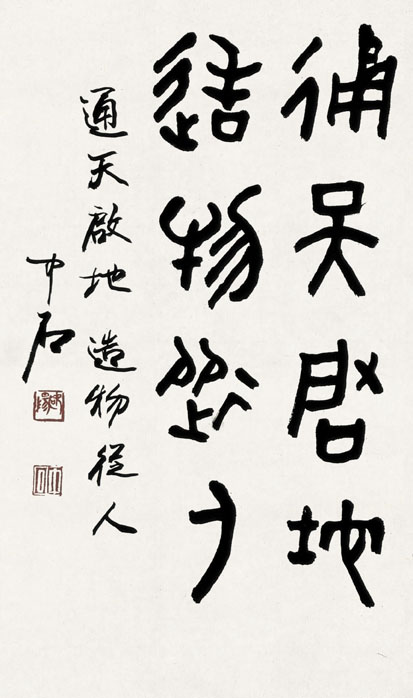 通天启地
造物從人
通天啟地 造物從人
中石